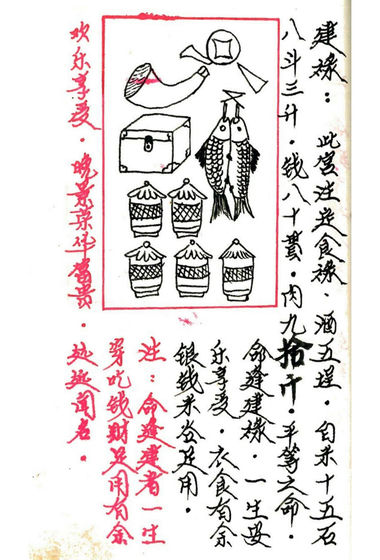 建禄：此宫注定食禄、酒五埕．白米十五石
八斗三升．钱八十贯．肉九拾斤．平等之命．
命逢建禄．一生安
乐享受．衣食有余
银钱米谷足用．
注：命逢建者一生
穿吃钱财足用有余
欢乐享受．晚景荣华富贵．闻名．